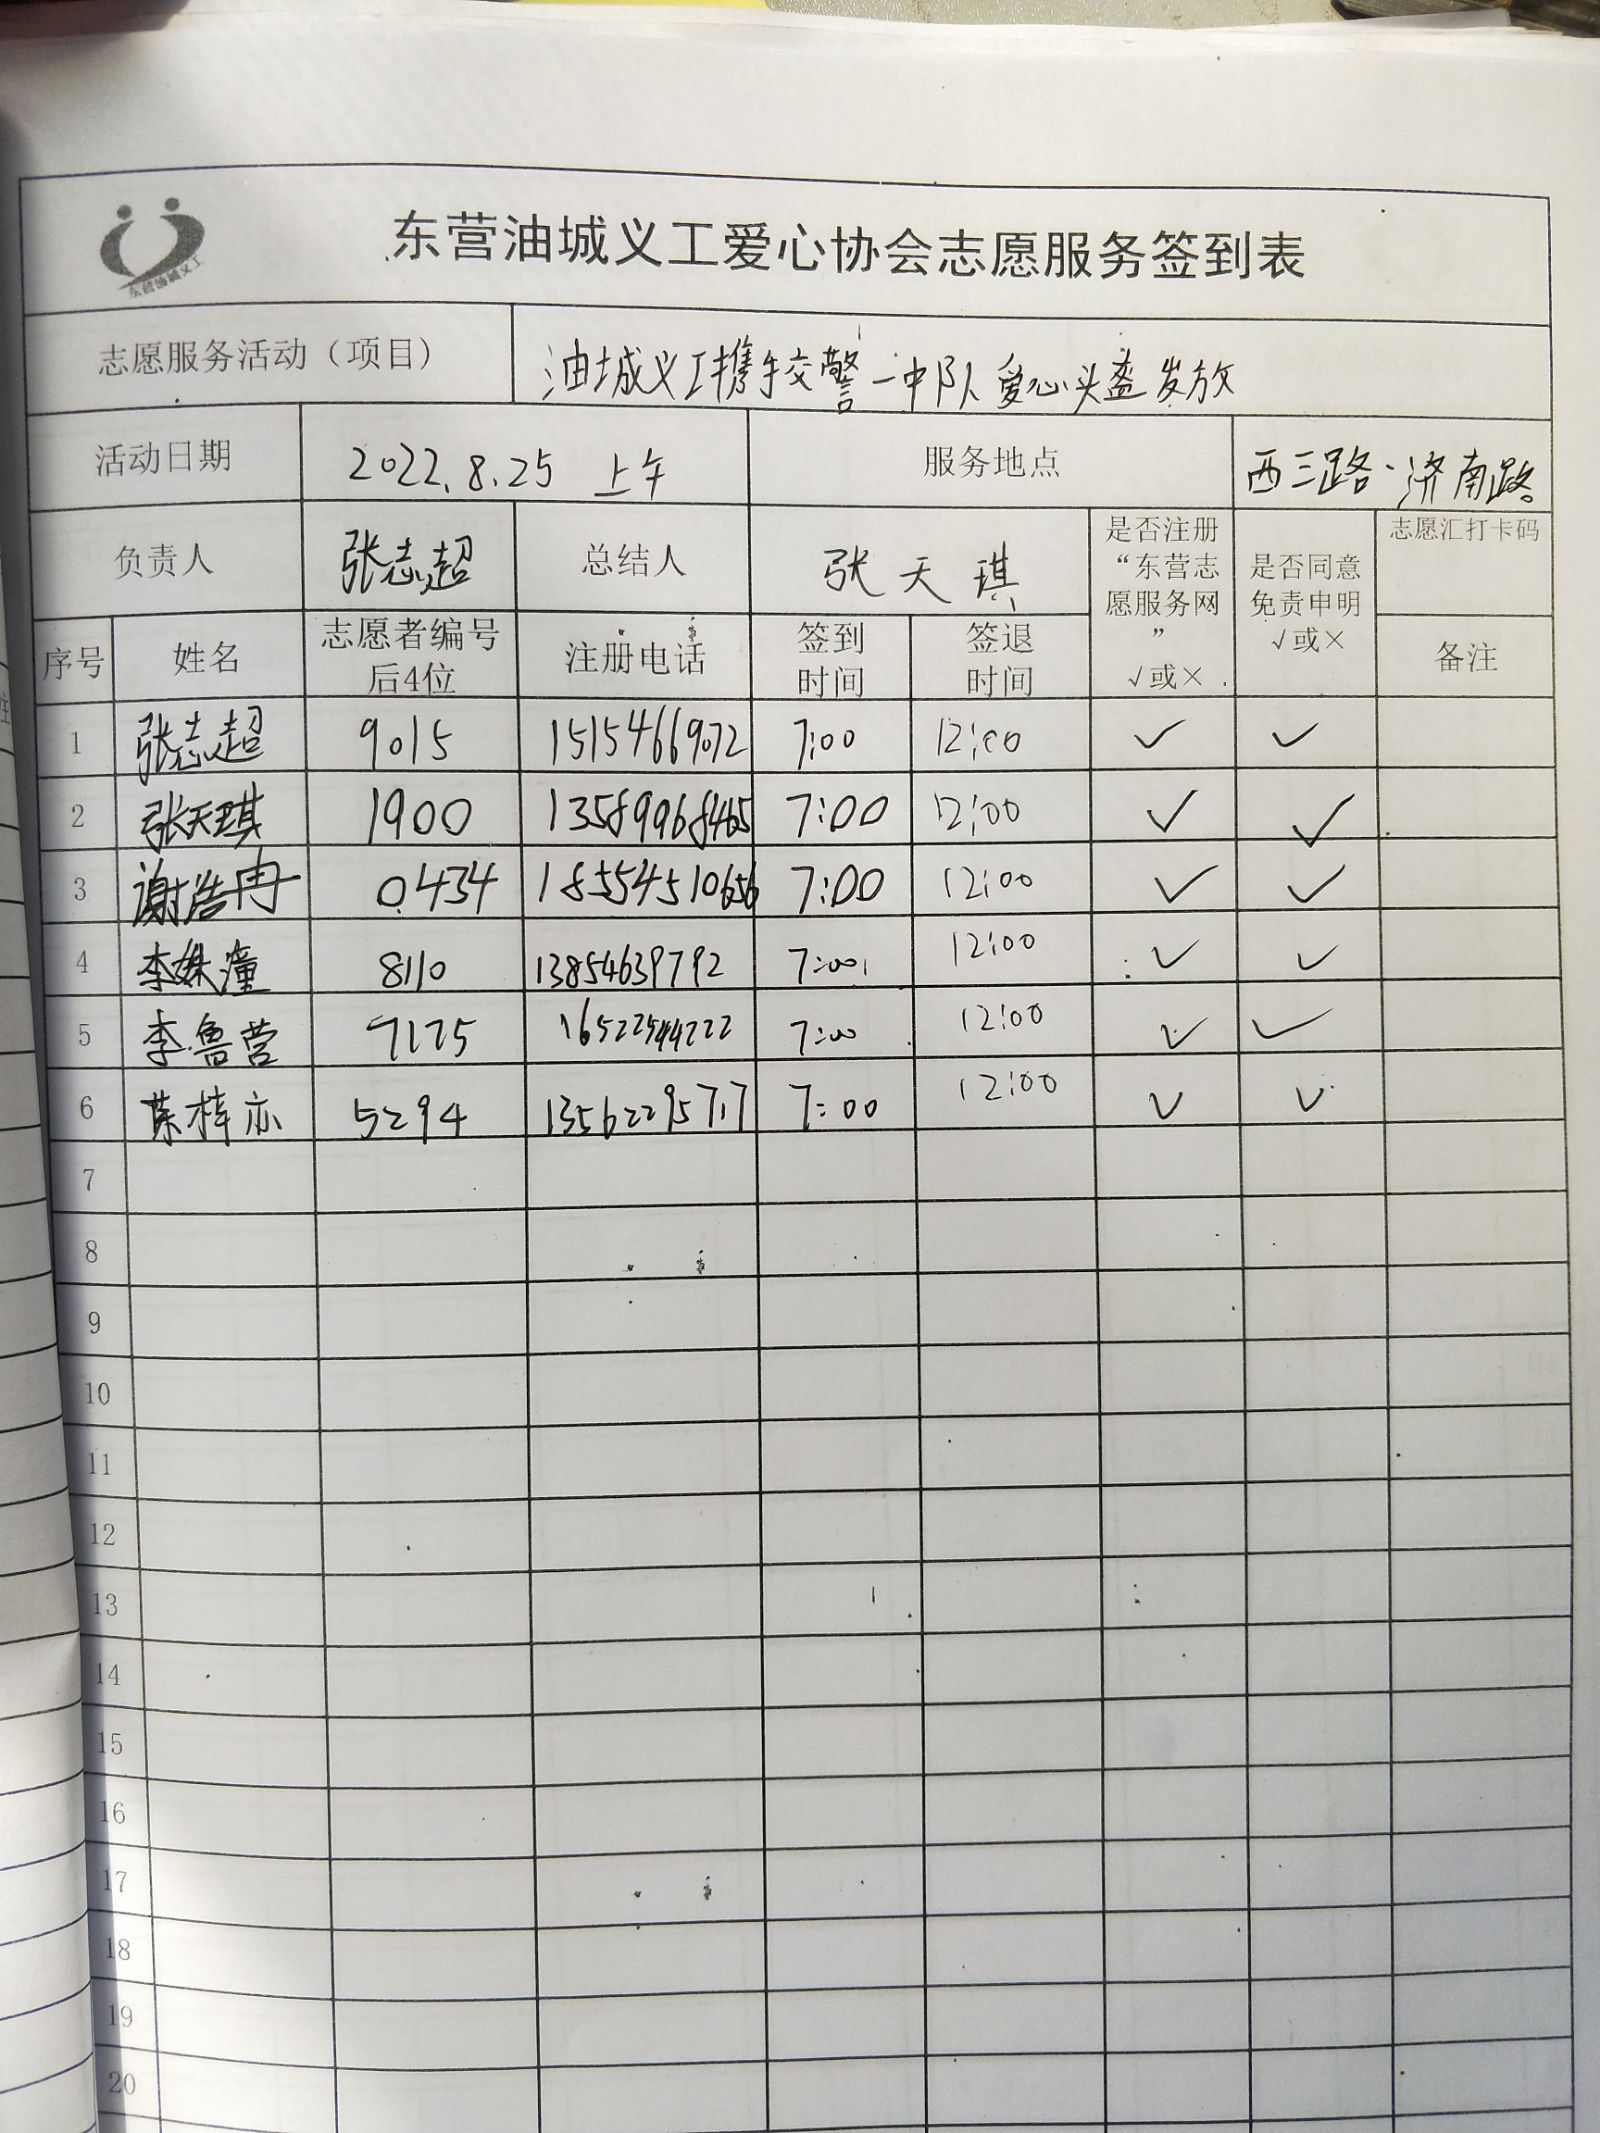 东营油城义工
东营油城义工爱心协会志愿服务签到表
志愿服务活动（项目） 油城义工携手交警一中队爱心头盔发放
活动日期 2022.8.25 上午 服务地点 西三路·济南路
负责人 张志超 总结人 张天琪 是否注册“东营志愿服务网”√或× 是否同意免责申明√或× 志愿汇打卡码
序号 姓名 志愿者编号后4位 注册电话 签到时间 签退时间 备注
1 张志超 9015 15154669072 7:00 12:00 ✓ ✓
2 张天琪 1900 13589968465 7:00 12:00 ✓ ✓
3 谢浩冉 0434 18554510656 7:00 12:00 ✓ ✓
4 李姝潼 8110 13854639792 7:00 12:00 ✓ ✓
5 李鲁营 7175 16522544222 7:00 12:00 ✓ ✓
6 梓亦 5294 13562295717 7:00 12:00 ✓ ✓
7
8
9
10
11
12
13
14
15
16
17
18
19
20